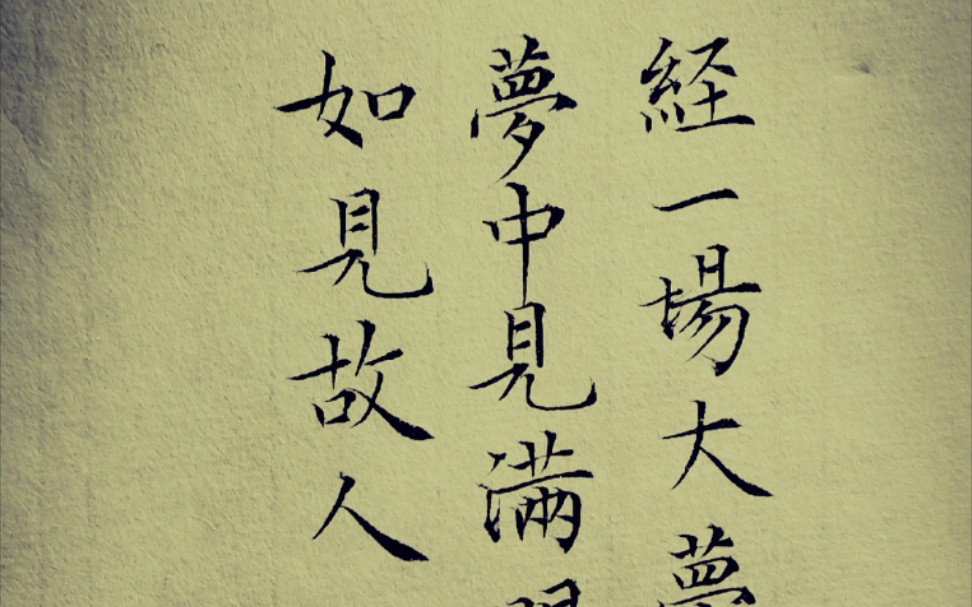 経一場大夢
夢中見滿
如見故人